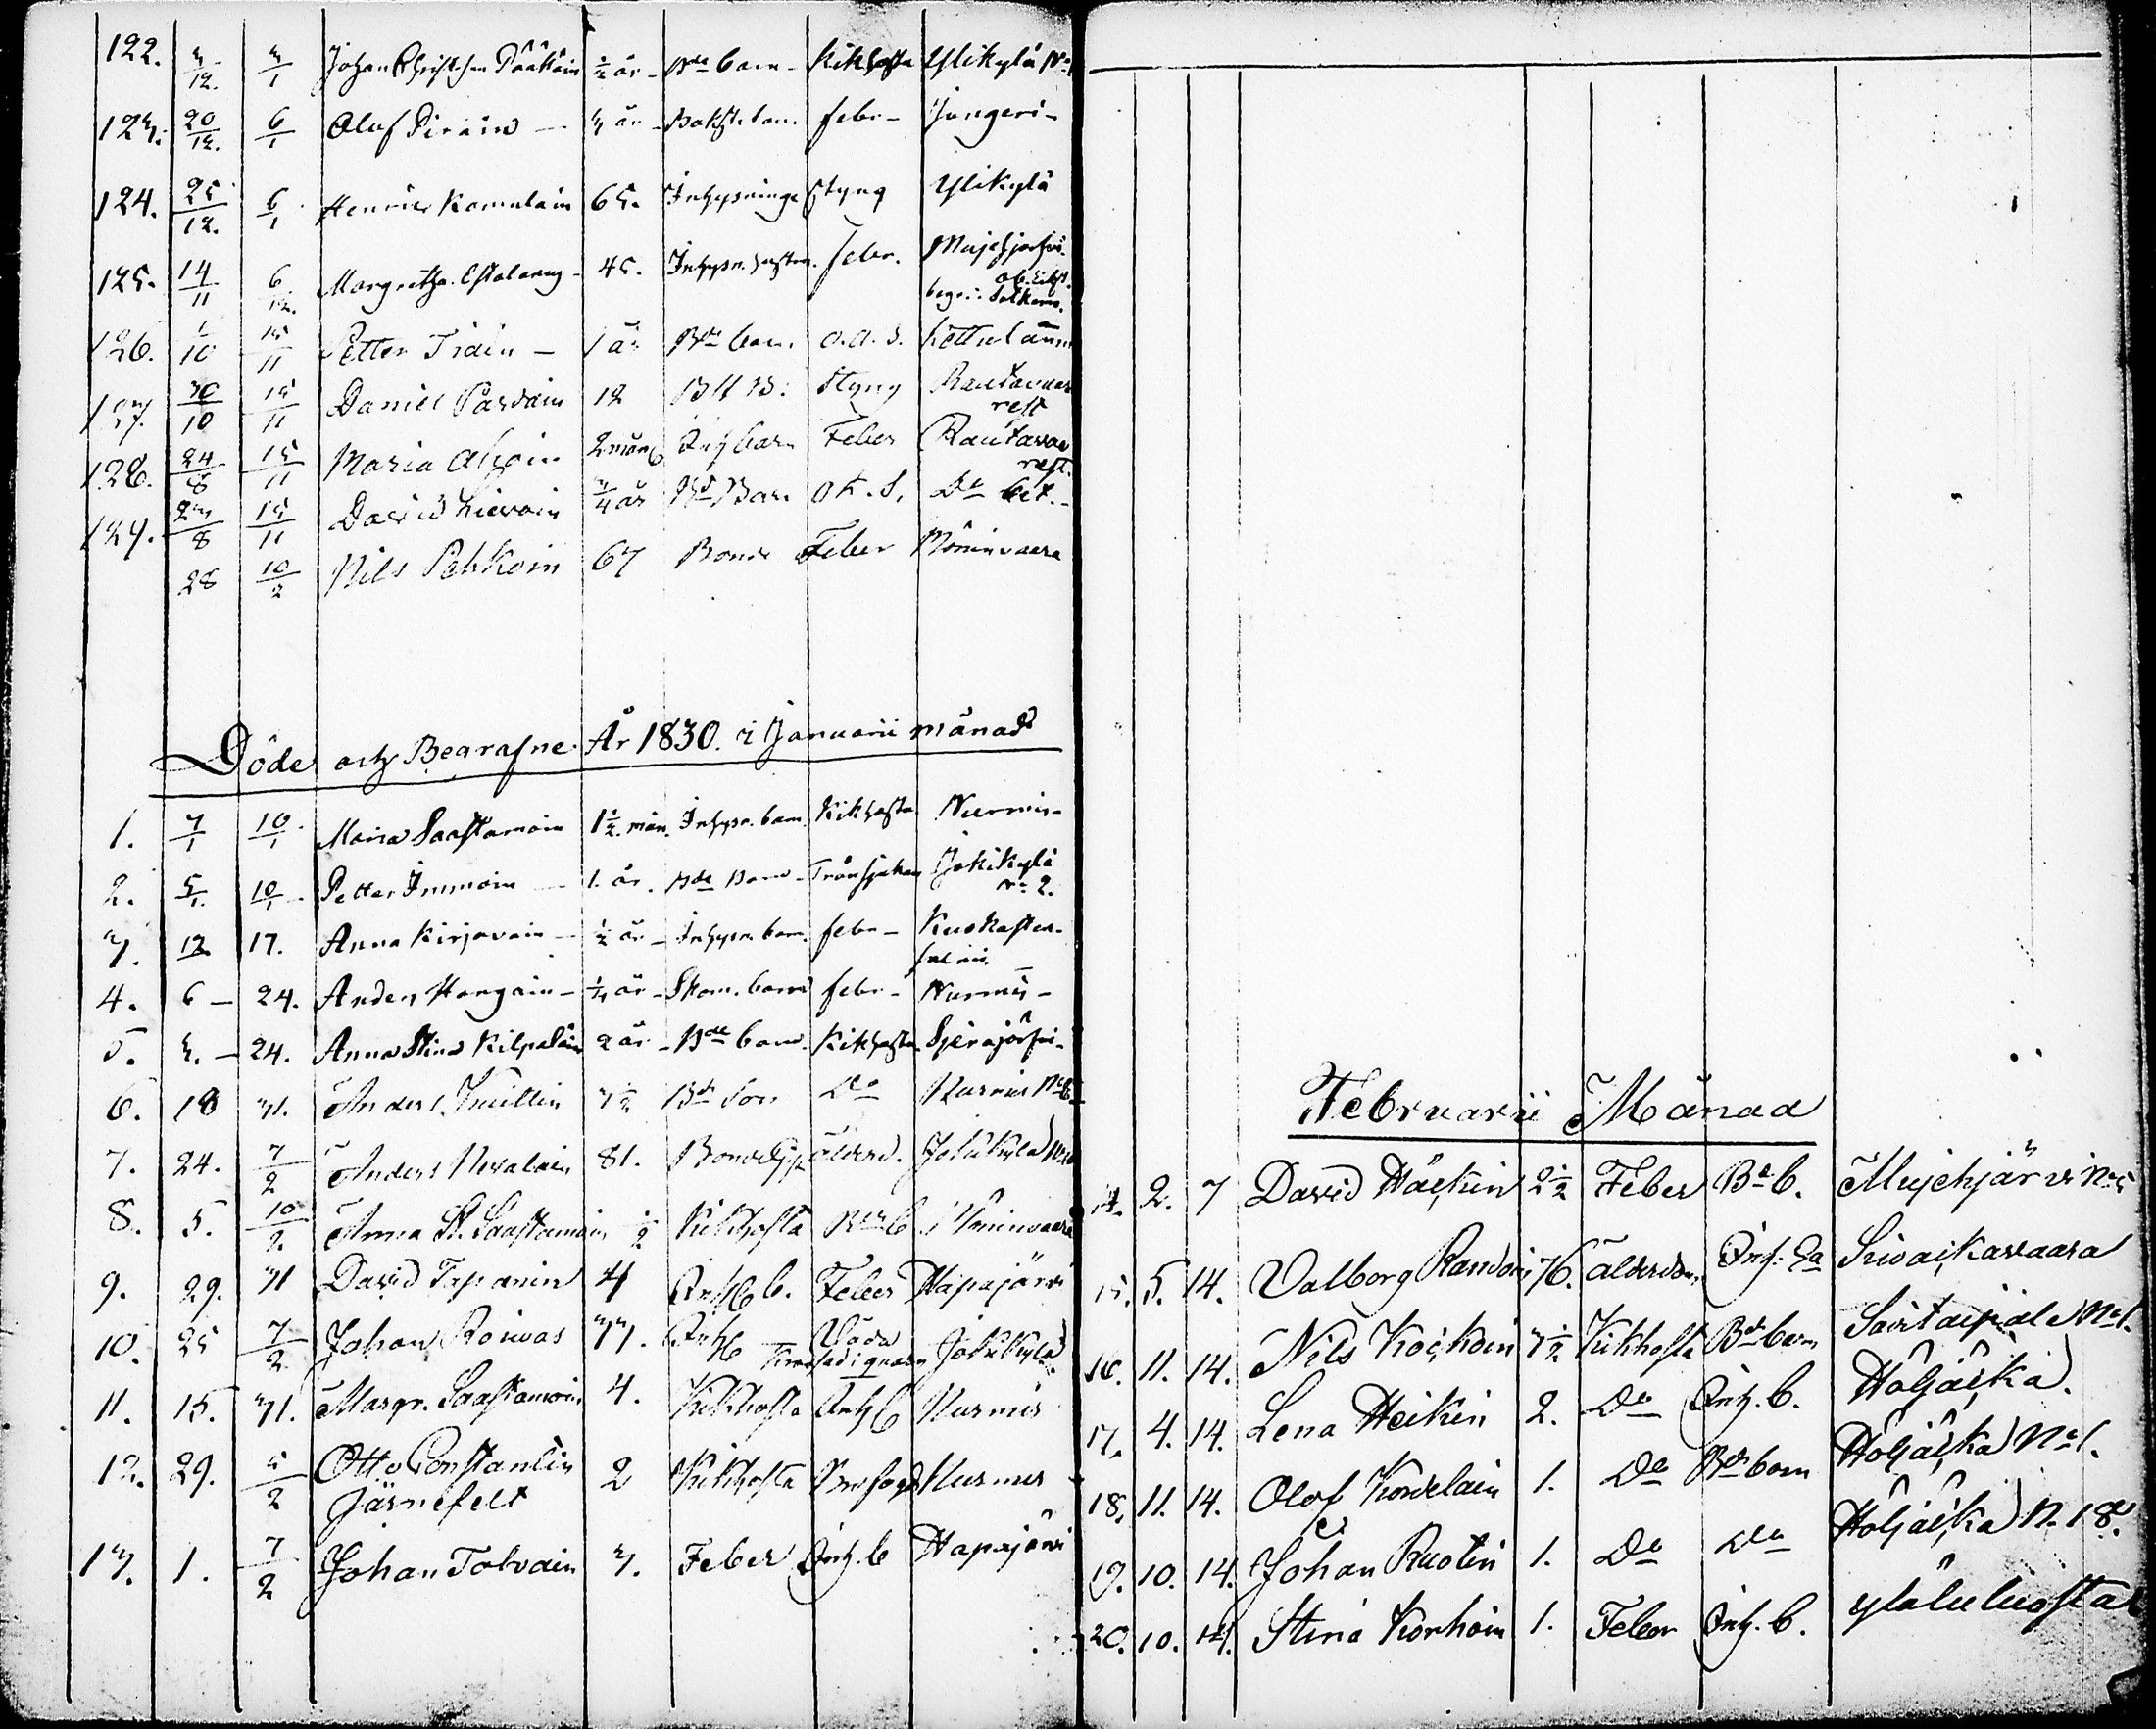 122. 3/12. 3/1 Johan Christ.son Pääkäin 1/2 år - Bde barn - Kikhosta Ylikylä No
123. 20/12. 6/1 Olof Pirain — 3 år - feber - Jongeri -
124. 25/12. 6/1 Henric Komulain 65. Inhysninge Styng Ylikylä
125. 14/11 6/12. Margretha 45. Inhysn. hustru. feber. Mujehjerfvi
begr. i Sotkamo.
126. 1/10 15/11 Petter Tiain — 1 år Bde barn. o.a.s.
127. 30/10 15/11 Daniel Parvain 12 Styng Rautavaar
rest
128. 24/8 15/11 Maria 2 mån Inh barn Feber Rautavaar
rest.
129. 23/8 15/11 David Lievoin 3/4 år Bd Barn ok. S. Do
28 10/2 Nils Pehkoin 67 Bonde Feber Mäninvaara
Döde och Begrafne År 1830. i Januarii månad
1. 7/1 10/1 Maria Saastamoin 1 1/2 mån. Inhysn. barn. Kikhosta Nurmis -
2. 5/1. 10/1 - Petter Immoin — 1. år. Bde Barn - Jokikylä
No 2.
3. 12 17. Anna Kirjavain — 1/2 år - Inhysn. barn. feber - Kuokasten-
salmi
4. 6 — 24. Anders Horgain - 1/4 år - Skom. barn feber - Nurmis -
5. 3. — 24. Anna Stina Kilpeläin 2 år - Bde barn. Kikhosta Sjerajärfvi -
6. 18 31. Anders Kuittin 3 1/2 Bde Son Do Nurmis No 6
7. 24. 7/2 Anders Nevalain 81. ålderd. Jokikylä
8. 5. 10/2. Anna St. Saastamoin 1/2 Kikhosta Bde b Mäninvaara
9. 29. 31 David Tapanin 4 Inh b. Feber Hapajärvi
10. 25 7/2 Johan Roivas 33. Inh Våda
Krossad i quarn Jokikylä
11. 15. 31. Margr. Saastamoin 4. Kikhosta Inh b Nurmis
12. 29. 5/2 Otto Constantin
Järnefelt 2 Kikhosta Nurmes
13. 1. 7/2 Johan Tolvain 3. Feber Inh. b Hapajärvi
Februarii Månad
14. 2. 7 David Häckin 2 1/2 Feber Bde b. Mujehjärvi No 5
15. 5. 14. Valborg Randoin 76. ålderdom Inh. Ga Suvaikavaara
16. 11. 14. Nils Kockoin 3 1/2 Kikhosta Bde barn Savitaipale No 1.
17. 4. 14. Lena Heikin 2. Do Inh. b. Höljäckä.
18. 11. 14. Olof Kovelain 1. Do Bde barn Höljäckä No 1.
19. 10. 14. Johan Ruotin 1. Do Do Höljäckä N. 18.
20. 10. 14. Stina Korhoin 1. Feber Inh. b.